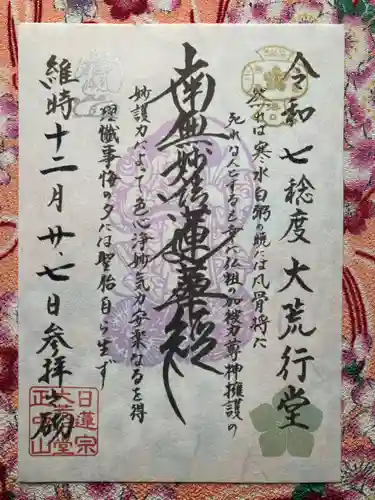 令和七稔度大荒行堂
然れは寒水白粥の瓶には凡骨将に
死れなんとすると雖へ仏祖の加被力尊神擁護の
南無妙法蓮華経
妙護力によって色心浄妙気力安楽なるを得
理懺事悔の夕には聖胎自ら生ず
維時十二月廿七日参拝之砌
日蓮宗
大荒堂
正中山